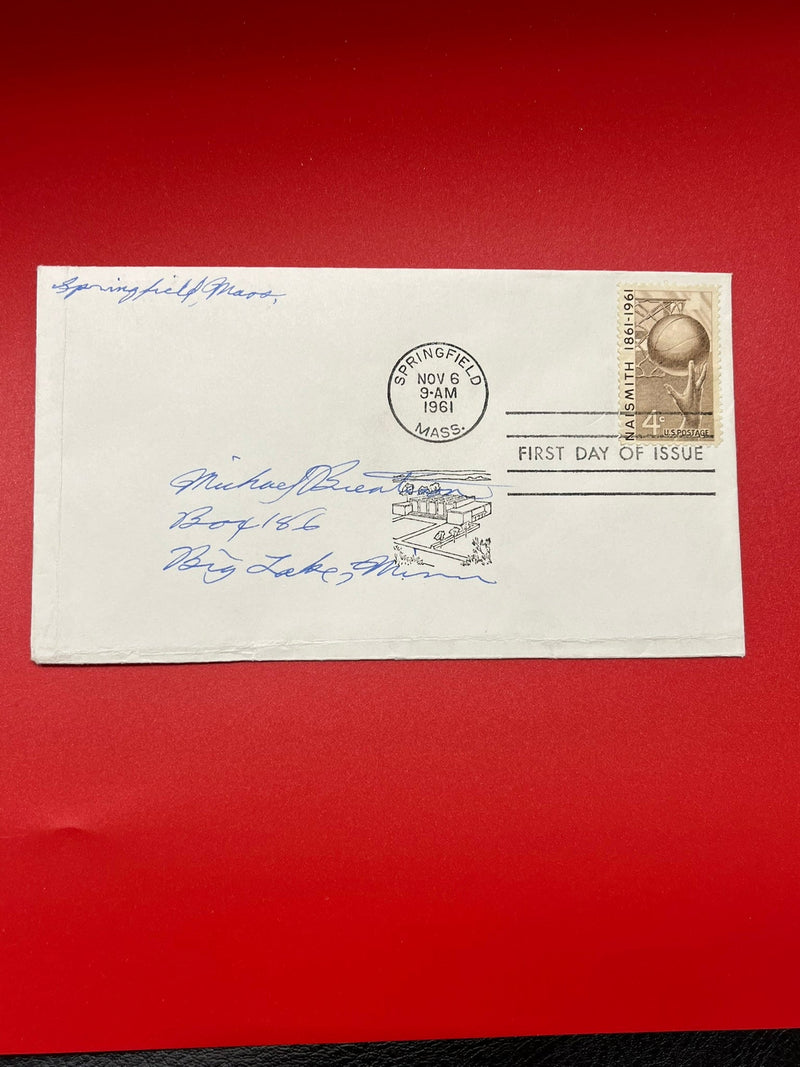 Springfield, Mass.
SPRINGFIELD
NOV 6
9-AM
1961
MASS.
NAISMITH 1861-1961
4c
U.S. POSTAGE
FIRST DAY OF ISSUE
Michael
Box 186
Big Lake, Minn